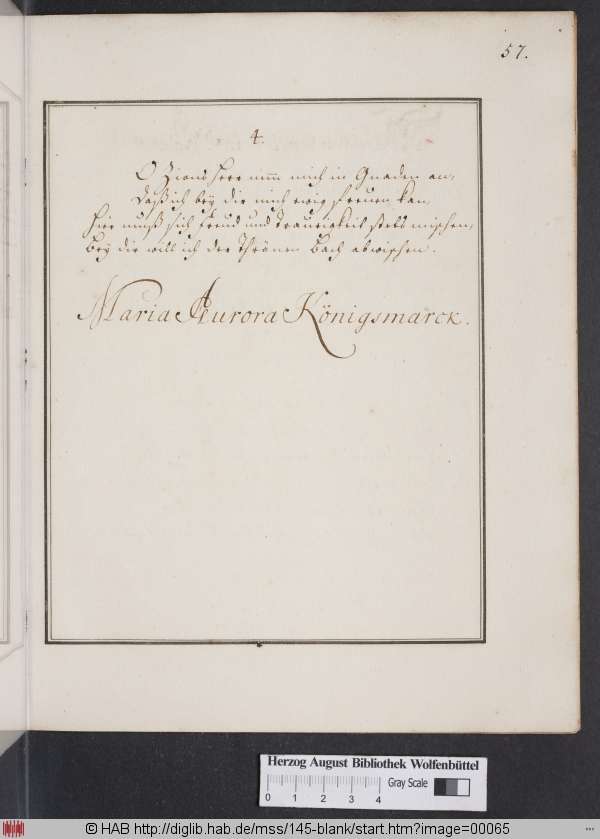 57.
4.
O Zions Herr nimm mich in Gnaden an,
Daß ich bey dir mich ewig freuen kan,
Hier muß sich Freud und Traurigkeit stets mischen,
Bey dir will ich der Thränen Bach abwischen.
Maria Aurora Königsmarck.
Herzog August Bibliothek Wolfenbüttel
0 1 2 3 4 Gray Scale
© HAB http://diglib.hab.de/mss/145-blank/start.htm?image=00065